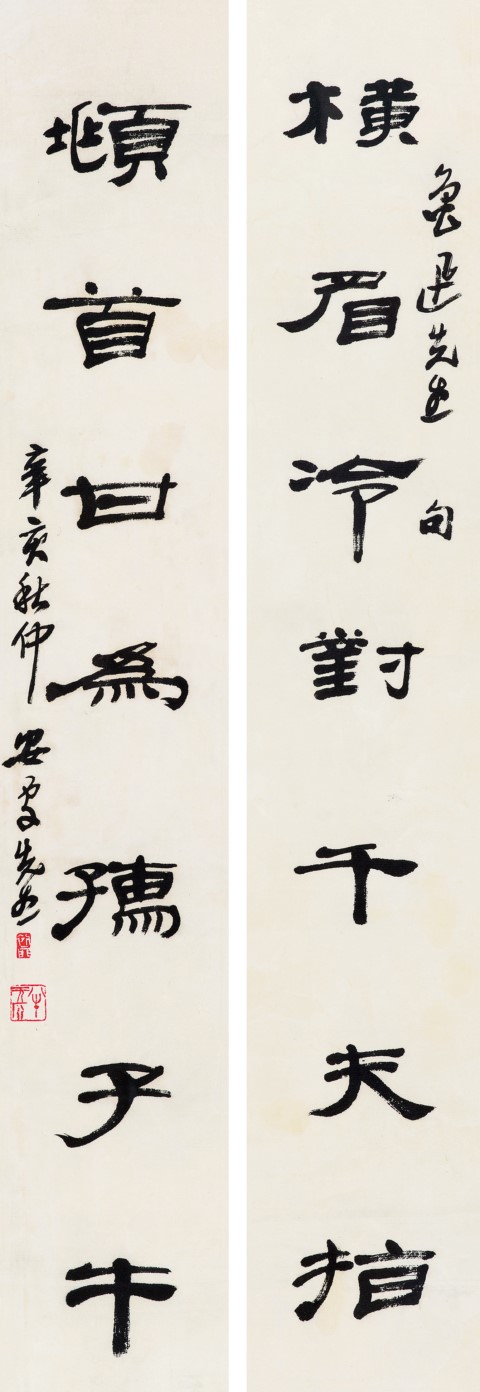 魯迅先生句
橫眉冷對千夫指
頫首甘為孺子牛
辛亥秋仲安處先生